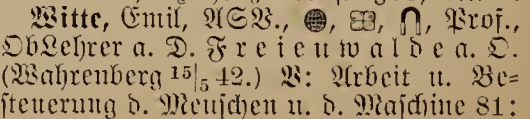 Witte, Emil, ASV., Prof.,
ObLehrer a. D. Freienwalde a. O.
(Wahrenberg 15|5 42.) V: Arbeit u. Be=
steuerung d. Menschen u. d. Maschine 81: